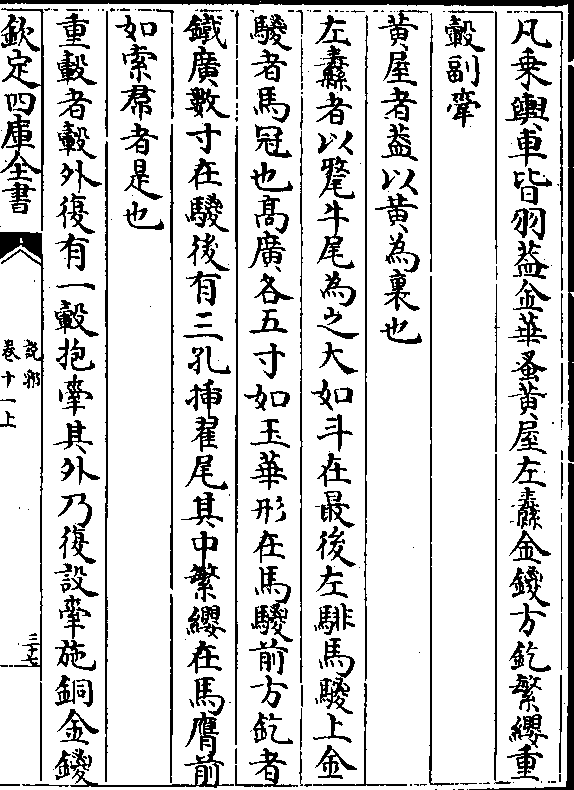 凡乗輿車皆羽葢金華蚤黄屋左纛金鍐方釳繁纓重
轂副舝
黄屋者葢以黄為裏也
左纛者以氂牛尾為之大如斗在最後左騑馬騣上金
騣者馬冠也髙廣各五寸如玉華形在馬騣前方釳者
鐵廣數寸在騣後有三孔挿翟尾其中繁纓在馬膺前
如索帬者是也
重轂者轂外復有一轂抱舝其外乃復設舝施銅金鍐
欽定四庫全書
說郛
卷十一上
三十七